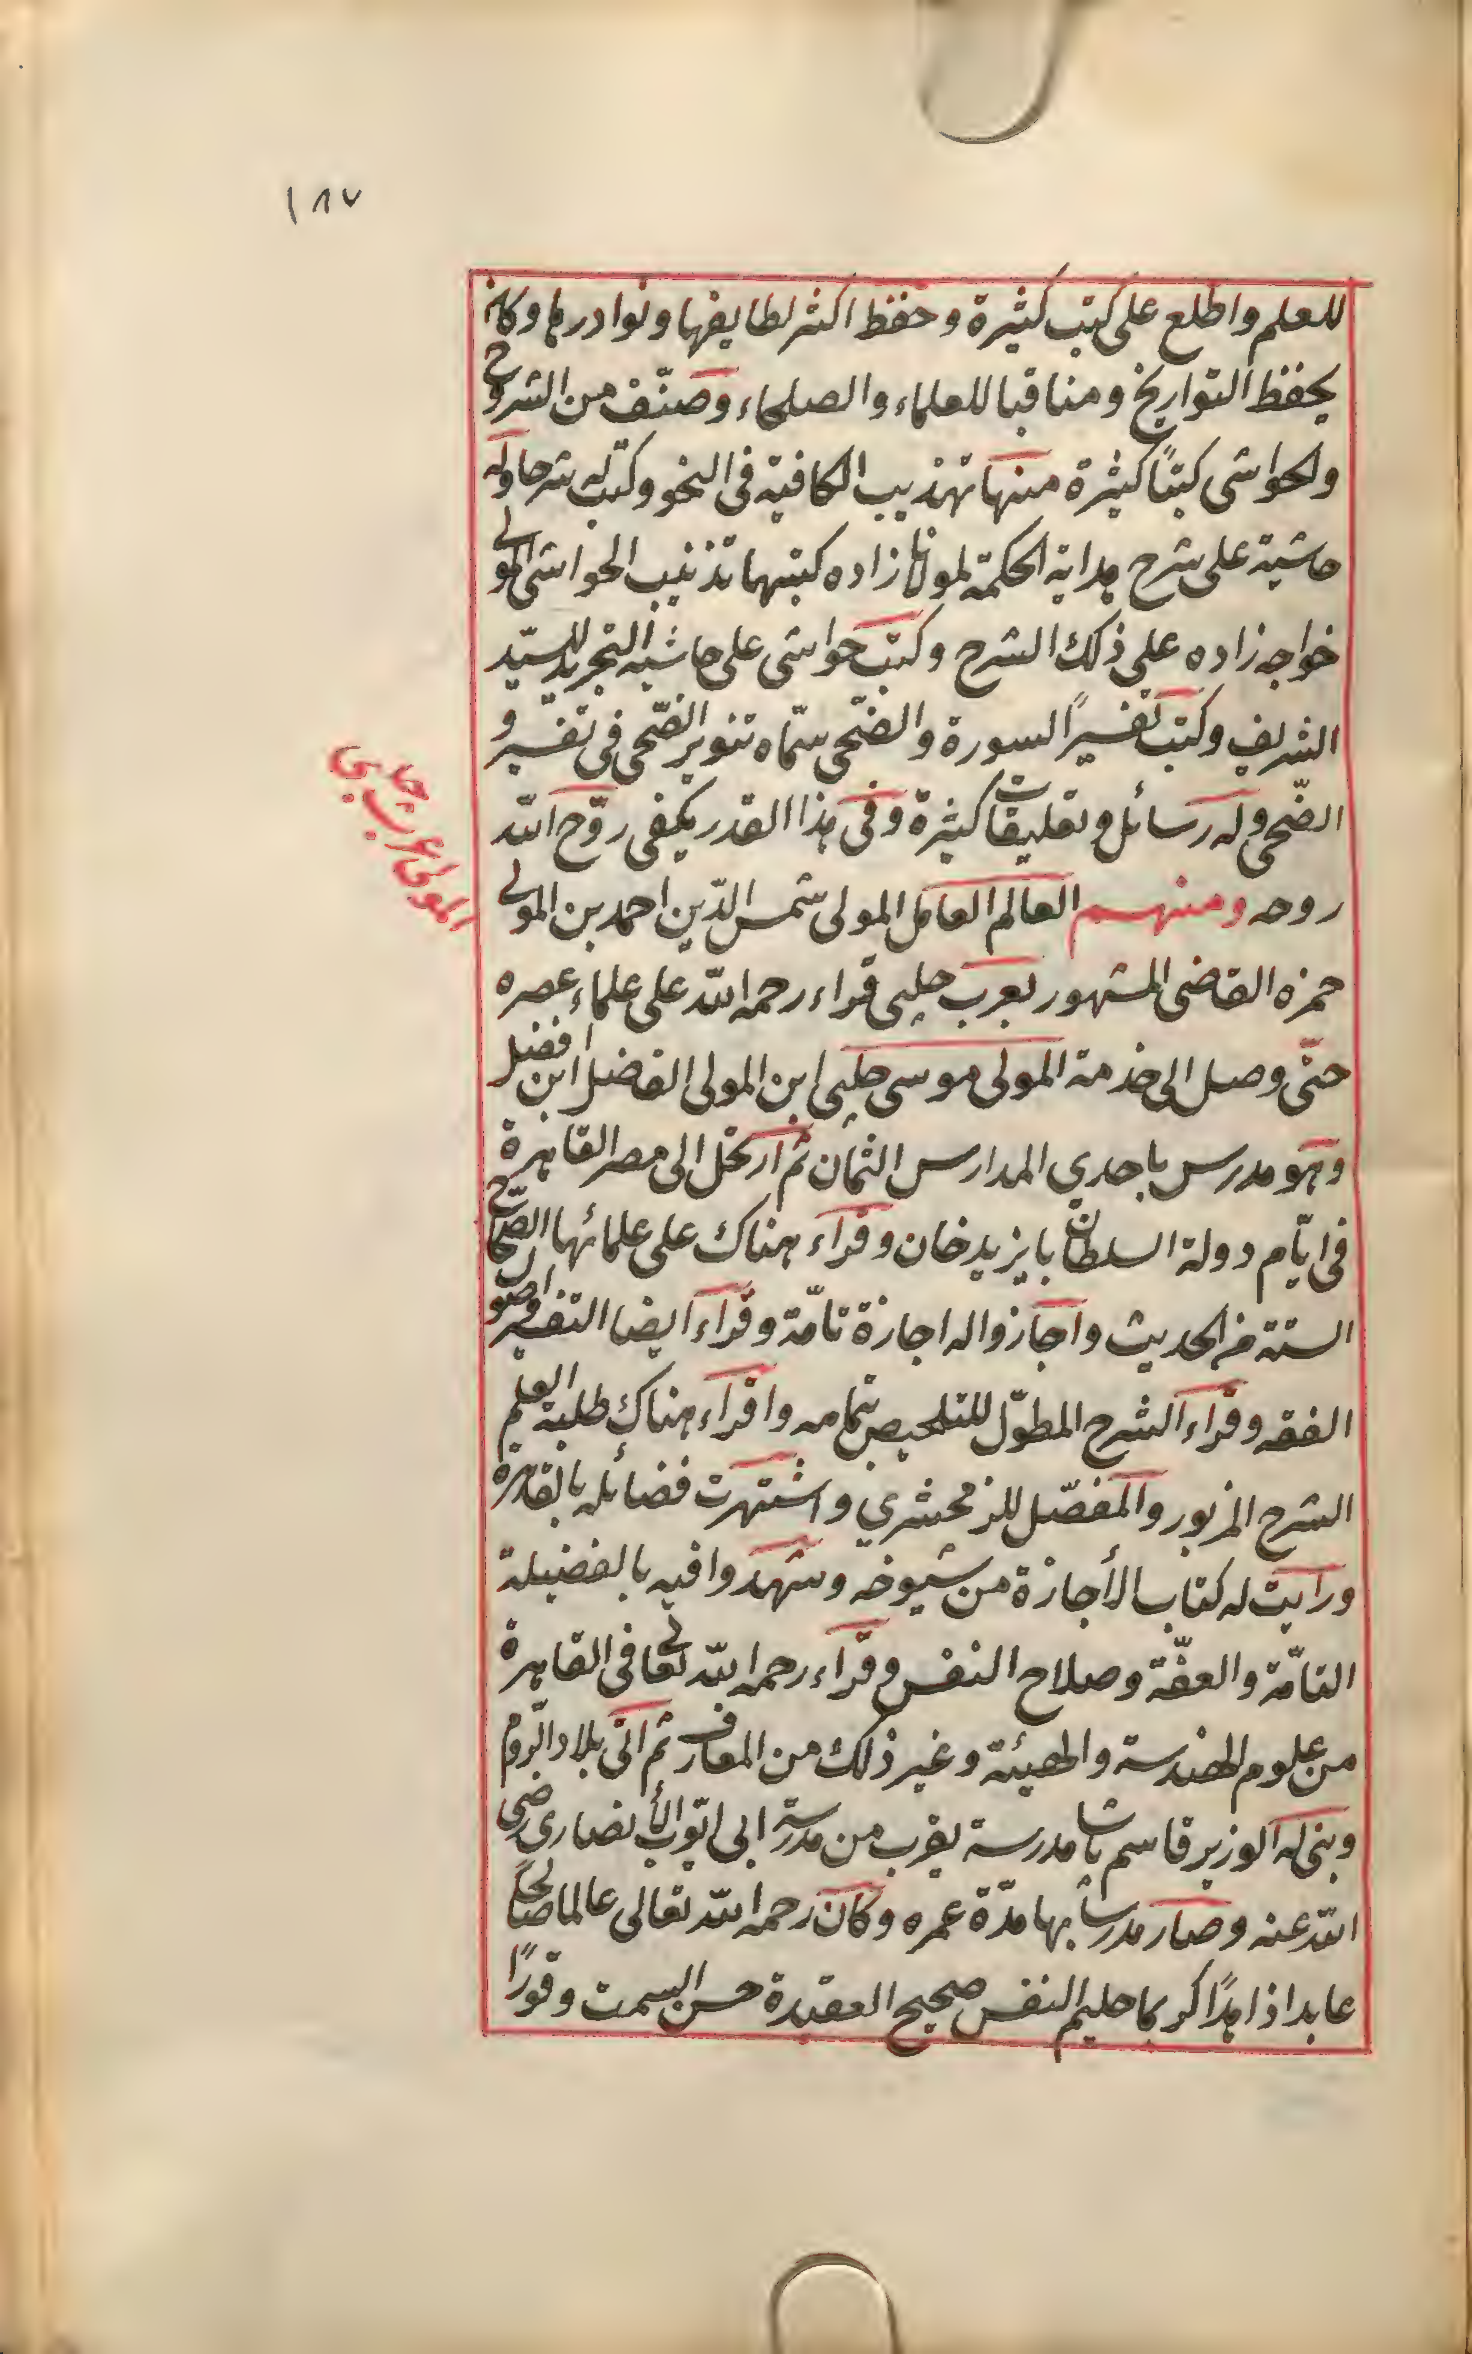 ١٨٧
للعلم واطلع على كتب كثيرة وحفظ اكثر لطايفها ونوادرها وكان
يحفظ التواريخ ومناقبا للعلماء والصلحاء وصنّف من الشروح
والحواشى كتبًا كثيرة منها تهذيب الكافية فى النحو وكتب له شرحا وله
حاشية على شرح هداية الحكمة لمولانا زاده كتبها تذنيب الحواشى المولى
خواجه زاده على ذلك الشرح وكتب حواشى على حاشية التجريد للسيّد
الشريف وكتب تفسيرًا لسورة والضّحى سمّاه تنوير الضّحى فى تفسير و
الضّحى وله رسائل وتعليقات كثيرة وفى هذا القدر يكفى روّح اللّه
روحه ومنهم العالم العامل المولى شمس الدّين احمد بن المولى
المولى عرب چلبى
حمزه القاضى المشهور بعرب چلبى قراء رحمه اللّه على علماء عصره
حتّى وصل الى خدمة المولى موسى چلبى ابن المولى الفاضل ابن افضل
وهو مدرس باحدي المدارس الثمان ثم ارتحل الى مصر القاهرة
فى ايّام دولة السلطان بايزيد خان وقراء هناك على علمائها الصّحاح
الستة من الحديث واجازوا له اجازة تامّة وقراء ايضا التفسير واصول
الفقه وقراء الشرح المطوّل للتلخيص بتمامه واقراء هناك طلبة العلم
الشرح المزبور والمفصّل للزمخشري واشتهرت فضائله بالقاهرة
ورايت له كتاب الأجازة من شيوخه وشهدوا فيه بالفضيلة
التامّة والعفّة وصلاح النفس وقراء رحمه اللّه تعالى فى القاهرة
من علوم الهندسة والهيئة وغير ذلك من المعارف ثم اتى بلاد الرّوم
وبنى له الوزير قاسم پاشا مدرسة بقرب من مدرسة ابى ايّوب الأنصارى رضى
اللّه عنه وصار مدرسًا بها مدّة عمره وكان رحمه اللّه تعالى عالما صالحًا
عابدا زاهدًا كريما حليم النفس صحيح العقيدة حسن السمت وقورًا